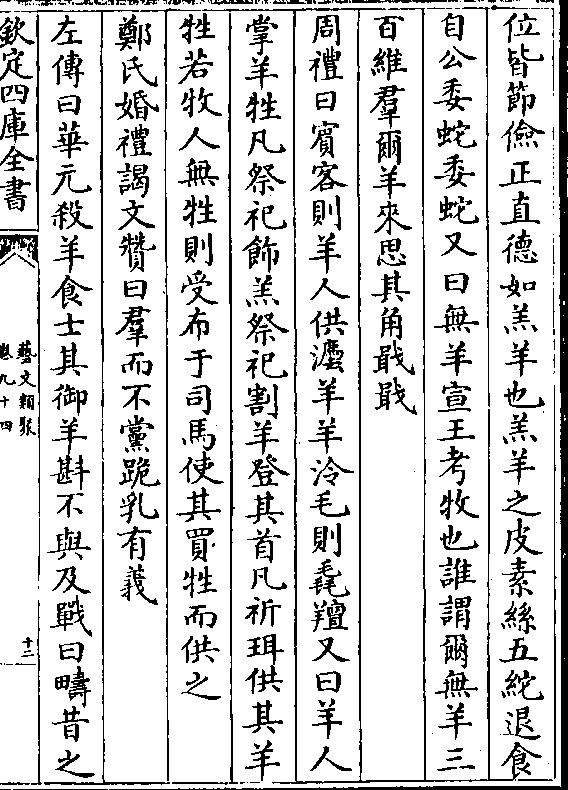 位皆節儉正直德如羔羊也羔羊之皮素絲五紽退食
自公委蛇委蛇又曰無羊宣王考牧也誰謂爾無羊三
百維羣爾羊來思其角戢戢
周禮曰賓客則羊人供灋羊羊泠毛則毳羶又曰羊人
掌羊牲凡祭祀飾羔祭祀割羊登其首凡祈珥供其羊
牲若牧人無牲則受布于司馬使其買牲而供之
鄭氏婚禮謁文贊曰羣而不黨跪乳有義
左傳曰華元殺羊食士其御羊斟不與及戰曰疇昔之
欽定四庫全書
藝文類聚
卷九十四
十二